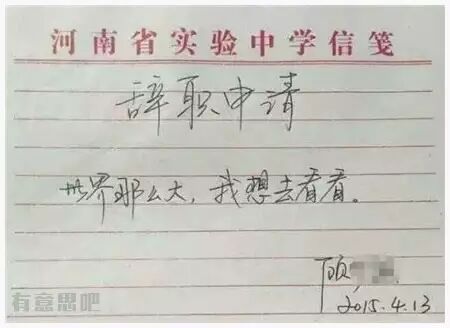 河南省实验中学信笺
辞职申请
世界那么大，我想去看看。
顾
2015.4.13
有意思吧